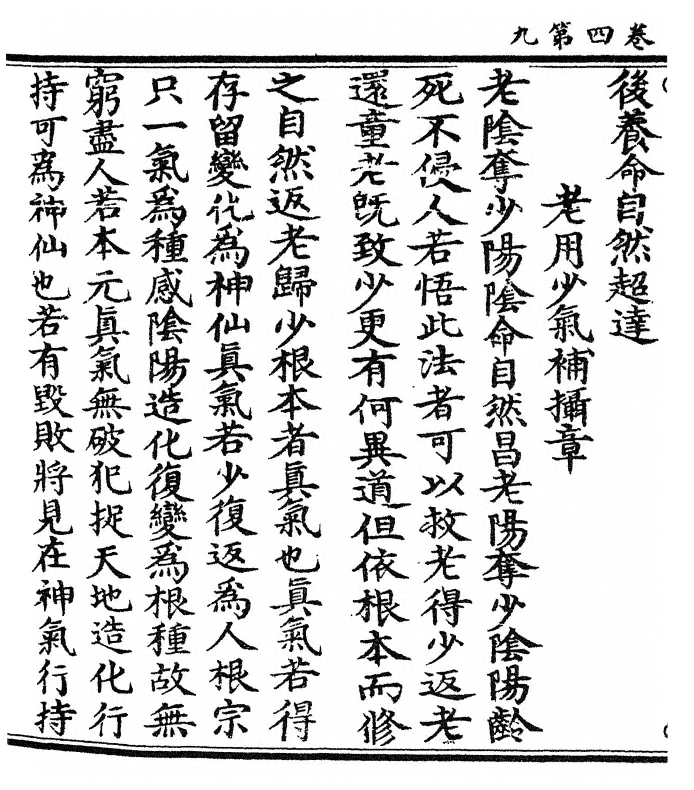 卷四第九
後養命自然超達
老用少氣補攝章
老陰奪少陽陰命自然昌老陽奪少陰陽齡
死不侵人若悟此法者可以救老得少返老
還童老既致少更有何異道但依根本而修
之自然返老歸少根本者眞氣也眞氣若得
存留變化為神仙眞氣若少復返為人根宗
只一氣為種感陰陽造化復變為根種故無
窮盡人若本元眞氣無破犯捉天地造化行
持可為神仙也若有毀敗將見在神氣行持